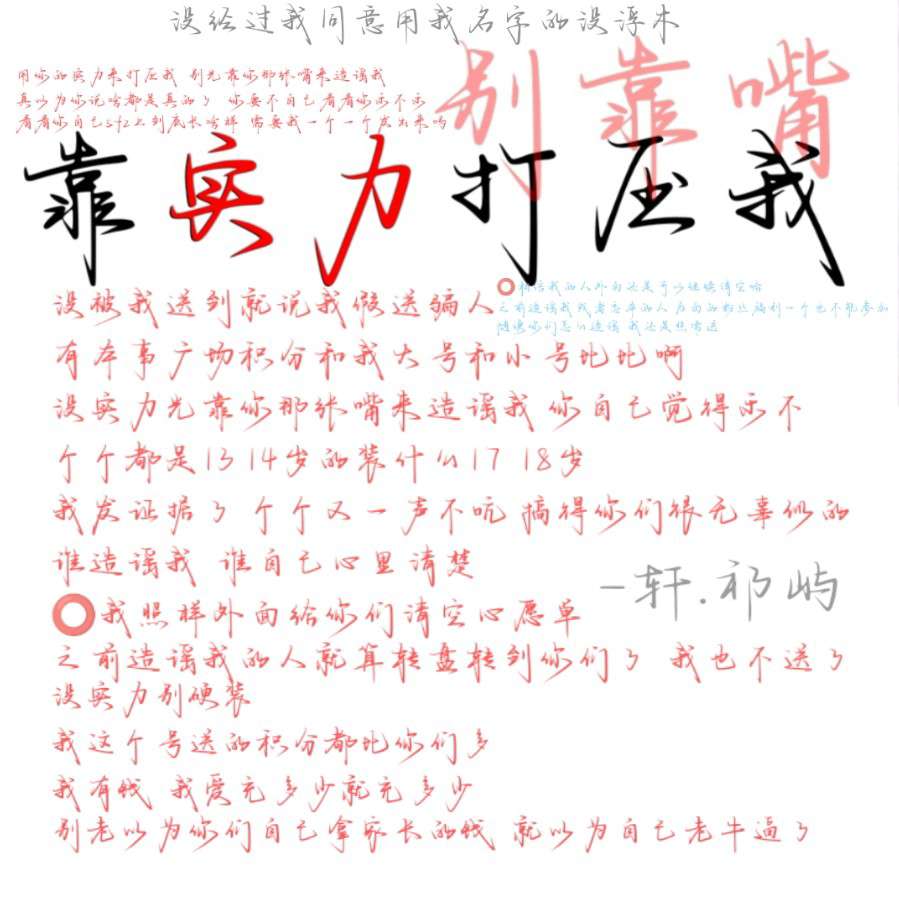 没经过我同意用我名字的没浮木
用你的实力来打压我 别光靠你那张嘴来造谣我
真以为你说啥都是真的了 你要不自己看看你乐不乐
看看你自己sfz上到底长啥样 需要我一个一个发出来吗
别靠嘴
靠实力打压我
没被我送到就说我假送骗人
⭕相信我的人外面还是可以继续清空哈
之前造谣我或者忘本的人 为的那些福利一个也不能参加
随便你们怎么造谣 我还是照常送
有本事广场积分和我大号和小号比比啊
没实力光靠你那张嘴来造谣我 你自己觉得乐不
个个都是13 14岁的装什么17 18岁
我发证据了 个个又一声不吭 搞得你们很无辜似的
谁造谣我 谁自己心里清楚
-轩.祁屿
⭕我照样外面给你们清空心愿单
之前造谣我的人就算转盘转到你们了 我也不送了
没实力别硬装
我这个号送的积分都比你们多
我有钱 我爱充多少就充多少
别老以为你们自己拿家长的钱 就以为自己老牛逼了